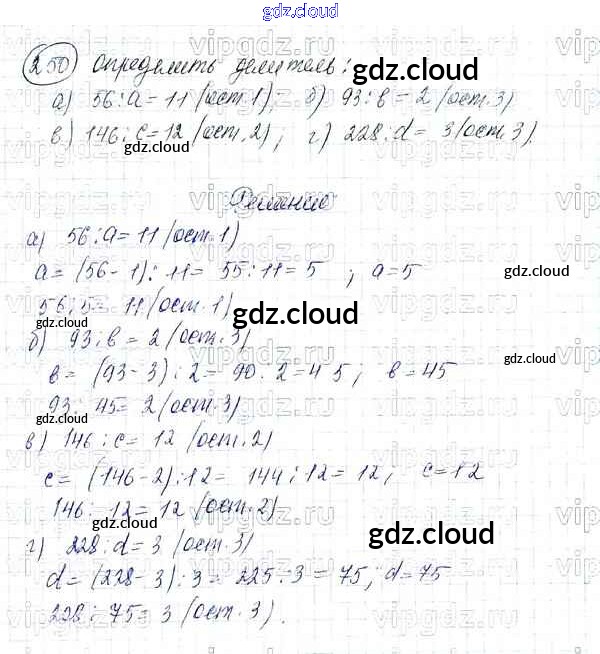 gdz.cloud
250 Определить делитель:
а) 56 : a = 11 (ост. 1), б) 93 : в = 2 (ост. 3)
в) 146 : c = 12 (ост. 2); г) 228 : d = 3 (ост. 3).
Решение
а) 56 : a = 11 (ост. 1)
a = (56 - 1) : 11 = 55 : 11 = 5 ; a = 5
56 : 5 = 11 (ост. 1)
б) 93 : в = 2 (ост. 3)
в = (93 - 3) : 2 = 90 : 2 = 45 ; в = 45
93 : 45 = 2 (ост. 3)
в) 146 : c = 12 (ост. 2)
c = (146 - 2) : 12 = 144 : 12 = 12 ; c = 12
146 : 12 = 12 (ост. 2)
г) 228 : d = 3 (ост. 3)
d = (228 - 3) : 3 = 225 : 3 = 75 ; d = 75
228 : 75 = 3 (ост. 3).